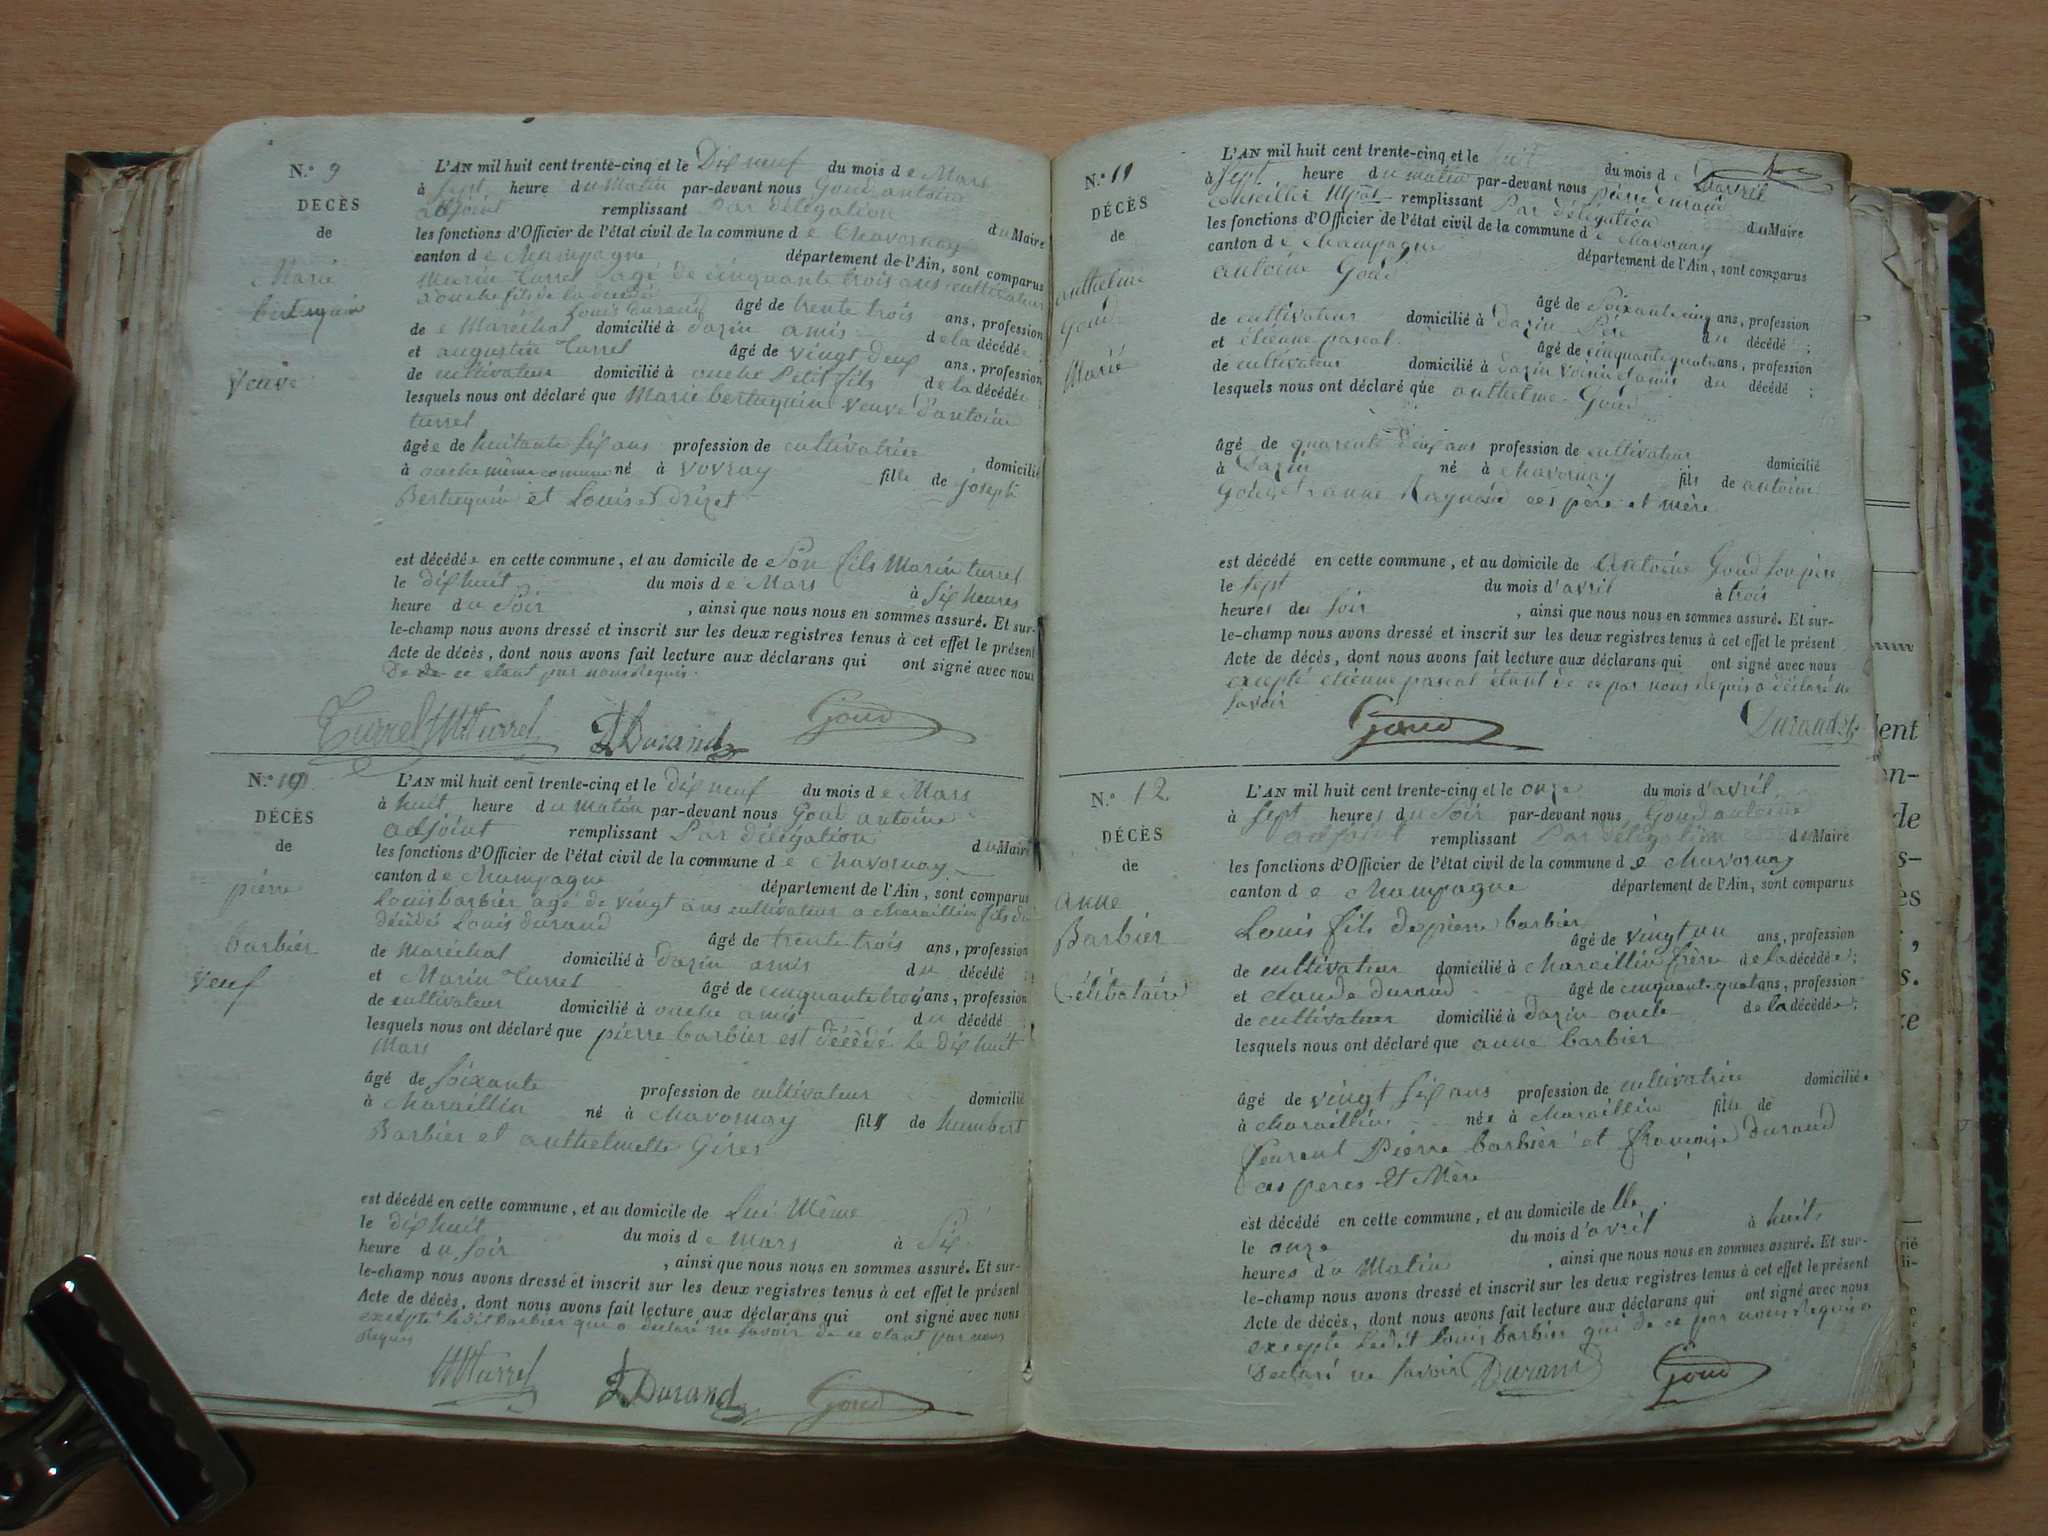 N.° 9
DÉCÈS
de
Marie
bertuquin
Veuve
L'AN mil huit cent trente-cinq et le Dix neuf du mois de Mars
à sept heure du Matin par-devant nous Goud antoine
adjoint remplissant Par délégation du Maire
les fonctions d'Officier de l'état civil de la commune de Chavornay
canton de Champagne département de l'Ain, sont comparus
Marin turrel agé de cinquante trois ans cultivateur
a ouche fils de la décédée
Louis durand âgé de trente trois ans, profession
de Maréchal domicilié à dazin amis de la décédée ;
et augustin turrel âgé de vingt deux ans, profession
de cultivateur domicilié à ouche Petit fils de la décédée ;
lesquels nous ont déclaré que Marie bertuquin Veuve d'antoine
turrel
âgée de huitante six ans profession de cultivatrice, domicilié
à ouche même commune né à Vovray fille de joseph
Bertuquin et Louise drizet
est décédée en cette commune, et au domicile de son fils Marin turrel
le dix huit du mois de Mars à six heures
heure du soir, ainsi que nous nous en sommes assuré. Et sur-
le-champ nous avons dressé et inscrit sur les deux registres tenus à cet effet le présent
Acte de décès, dont nous avons fait lecture aux déclarans qui ont signé avec nous
De de ce etant par nous Requis.
Turrel MTurrel L Durand Goud
N.° 10
DÉCÈS
de
pierre
barbier
Veuf
L'AN mil huit cent trente-cinq et le dix neuf du mois de Mars
à huit heure du matin par-devant nous Goud antoine
adjoint remplissant Par délégation du Maire
les fonctions d'Officier de l'état civil de la commune de Chavornay
canton de Champagne département de l'Ain, sont comparus
Louis barbier agé de vingt ans cultivateur a Charaillin fils du
décédé Louis durand
âgé de trente trois ans, profession
de Maréchal domicilié à dazin amis du décédé ;
et Marin turrel âgé de cinquante trois ans, profession
de cultivateur domicilié à ouche amis du décédé
lesquels nous ont déclaré que pierre barbier est décédé le dix huit
Mars
âgé de soixante profession de cultivateur domicilié
à Charaillin né à Chavornay fils de humbert
Barbier et anthelmette Girer
est décédé en cette commune, et au domicile de Lui Même
le dix huit du mois de Mars à six
heure du soir, ainsi que nous nous en sommes assuré. Et sur-
le-champ nous avons dressé et inscrit sur les deux registres tenus à cet effet le présent
Acte de décès, dont nous avons fait lecture aux déclarans qui ont signé avec nous
excepté ledit barbier qui a declaré ne savoir de ce etant par nous
Requis
MTurrel L Durand Goud
N.° 11
DÉCÈS
de
anthelme
Goud
Marié
L'AN mil huit cent trente-cinq et le huit du mois d'avril
à sept heure du matin par-devant nous pierre durand
conseiller Mpal remplissant Par délégation du Maire
les fonctions d'Officier de l'état civil de la commune de Chavornay
canton de Champagne département de l'Ain, sont comparus
antoine Goud
âgé de soixante cinq ans, profession
de cultivateur domicilié à dazin Père du décédé ;
et étienne pascal âgé de cinquante quatre ans, profession
de cultivateur domicilié à dazin voisin et amis du décédé ;
lesquels nous ont déclaré que anthelme Goud
âgé de quarente deux ans profession de cultivateur domicilié
à Dazin né à Chavornay fils de antoine
Goud et anne Raynaud ces père et mère
est décédé en cette commune, et au domicile de Antoine Goud son père
le sept du mois d'avril à trois
heures du soir, ainsi que nous nous en sommes assuré. Et sur-
le-champ nous avons dressé et inscrit sur les deux registres tenus à cet effet le présent
Acte de décès, dont nous avons fait lecture aux déclarans qui ont signé avec nous
excepté étienne pascal étant de ce par nous Requis a déclaré ne
savoir
Goud Durand
N.° 12
DÉCÈS
de
anne
Barbier
Célibataire
L'AN mil huit cent trente-cinq et le onze du mois d'avril
à sept heures du soir par-devant nous Goud antoine
adjoint remplissant Par délégation du Maire
les fonctions d'Officier de l'état civil de la commune de Chavornay
canton de Champagne département de l'Ain, sont comparus
Louis fils de pierre barbier
âgé de vingt un ans, profession
de cultivateur domicilié à Charaillin frère de la décédée ;
et claude durand âgé de cinquante quatre ans, profession
de cultivateur domicilié à dazin oncle de la décédée ;
lesquels nous ont déclaré que anne barbier
âgé de vingt six ans profession de cultivatrice domiciliée
à Charaillin née à Charaillin fille de
feurent Pierre barbier et françoise durand
ces peres et Mère
est décédé en cette commune, et au domicile de lle
le onze du mois d'avril à huit
heures du Matin, ainsi que nous nous en sommes assuré. Et sur-
le-champ nous avons dressé et inscrit sur les deux registres tenus à cet effet le présent
Acte de décès, dont nous avons fait lecture aux déclarans qui ont signé avec nous
excepte ledit Louis barbier qui de ce par nous Requis a
Declaré ne savoir Durand Goud